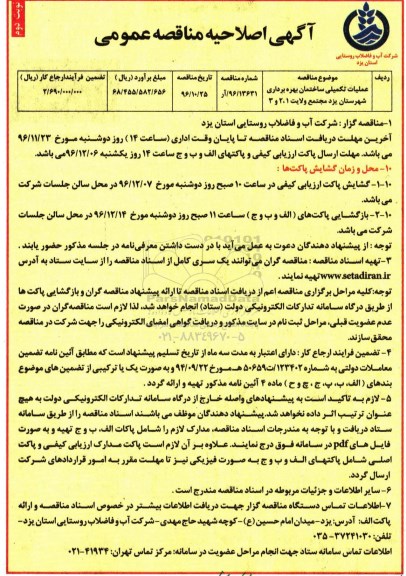 نوبت دوم
آگهی اصلاحیه مناقصه عمومی
شرکت آب و فاضلاب روستایی
استان یزد
ردیف موضوع مناقصه شماره مناقصه تاریخ مناقصه مبلغ برآورد (ریال) تضمین فرآیندارجاع کار (ریال)
۱ عملیات تکمیلی ساختمان بهره برداری ۹۶/۱۳۶۳۱/آر ۹۶/۱۰/۲۵ ۶۸/۴۵۵/۵۸۲/۶۵۶ ۲/۶۹۰/۰۰۰/۰۰۰
شهرستان یزد مجتمع ولایت ۲،۱ و ۳
۱-مناقصه گزار : شرکت آب و فاضلاب روستایی استان یزد
آخرین مهلت دریافت اسناد مناقصه تا پایان وقت اداری (ساعت ۱۴ ) روز دوشنبه مورخ ۹۶/۱۱/۲۳
می باشد. مهلت ارسال پاکت ارزیابی کیفی و پاکتهای الف و ب و ج ساعت ۱۴ روز یکشنبه ۹۶/۱۲/۰۶می باشد.
۱۰- محل و زمان گشایش پاکت‌ها :
۱-۱۰- گشایش پاکت ارزیابی کیفی در ساعت ۱۰ صبح روز دوشنبه مورخ ۹۶/۱۲/۰۷ در محل سالن جلسات شرکت
می باشد.
۲-۱۰- بازگشایی پاکت‌های (الف و ب و ج ) ساعت ۱۱ صبح روز دوشنبه مورخ ۹۶/۱۲/۱۴ در محل سالن جلسات
شرکت می باشد.
توجه : از پیشنهاد دهندگان دعوت به عمل می‌آید با در دست داشتن معرفی‌نامه در جلسه مذکور حضور یابند .
۳-تهیه اسناد مناقصه : مناقصه گران می‌توانند یک سری کامل از اسناد مناقصه را از سایت ستاد به آدرس
www.setadiran.ir تهیه نمایند .
توجه:کلیه مراحل برگزاری مناقصه اعم از دریافت اسناد مناقصه تا ارائه پیشنهاد مناقصه گران و بازگشایی پاکت ها
از طریق درگاه سامانه تدارکات الکترونیکی دولت (ستاد) انجام خواهد شد، لذا لازم است مناقصه‌گران در صورت
عدم عضویت قبلی، مراحل ثبت نام در سایت مذکور و دریافت گواهی امضای الکترونیکی را جهت شرکت در مناقصه
محقق سازند.
۴- تضمین فرایند ارجاع کار : دارای اعتبار به مدت سه ماه از تاریخ تسلیم پیشنهاد است که مطابق آئین نامه تضمین
معاملات دولتی به شماره ۱۲۳۴۰۲/ت۵۰۶۵۹هـ مورخ ۹۴/۰۹/۲۲ و به صورت یک یا ترکیبی از تضمین های موضوع
بندهای ( الف، ب، پ، ج ، چ و ح ) ماده ۴ آئین نامه مذکور تهیه و ارائه گردد .
۵- لازم به تاکید است به پیشنهادهای واصله خارج از درگاه سامانه تدارکات الکترونیکی دولت به هیچ
عنوان ترتیب اثر داده نخواهد شد. پیشنهاد دهندگان موظف می باشند اسناد مناقصه را از طریق سامانه
ستاد دریافت و با توجه به مندرجات اسناد مناقصه، مدارک لازم را شامل پاکات الف، ب و ج تهیه و به صورت
فایل های pdf در سامانه فوق درج نمایند. علاوه بر آن لازم است پاکت مدارک ارزیابی کیفی و پاکت
اصلی شامل پاکتهای الف و ب و ج به صورت فیزیکی نیز تا مهلت مقرر به امور قراردادهای شرکت
ارسال گردد.
۶- سایر اطلاعات و جزئیات مربوطه در اسناد مناقصه مندرج است .
۷-اطلاعات تماس دستگاه مناقصه گزار جهت دریافت اطلاعات بیشتر در خصوص اسناد مناقصه و ارائه
پاکت الف: آدرس: یزد-میدان امام حسین(ع)-کوچه شهید حاج مهدی-شرکت آب و فاضلاب روستایی استان یزد-
تلفن: ۳۷۲۴۱۰۳۰-۰۳۵
اطلاعات تماس سامانه ستاد جهت انجام مراحل عضویت در سامانه: مرکز تماس تهران: ۴۱۹۳۴-۰۲۱